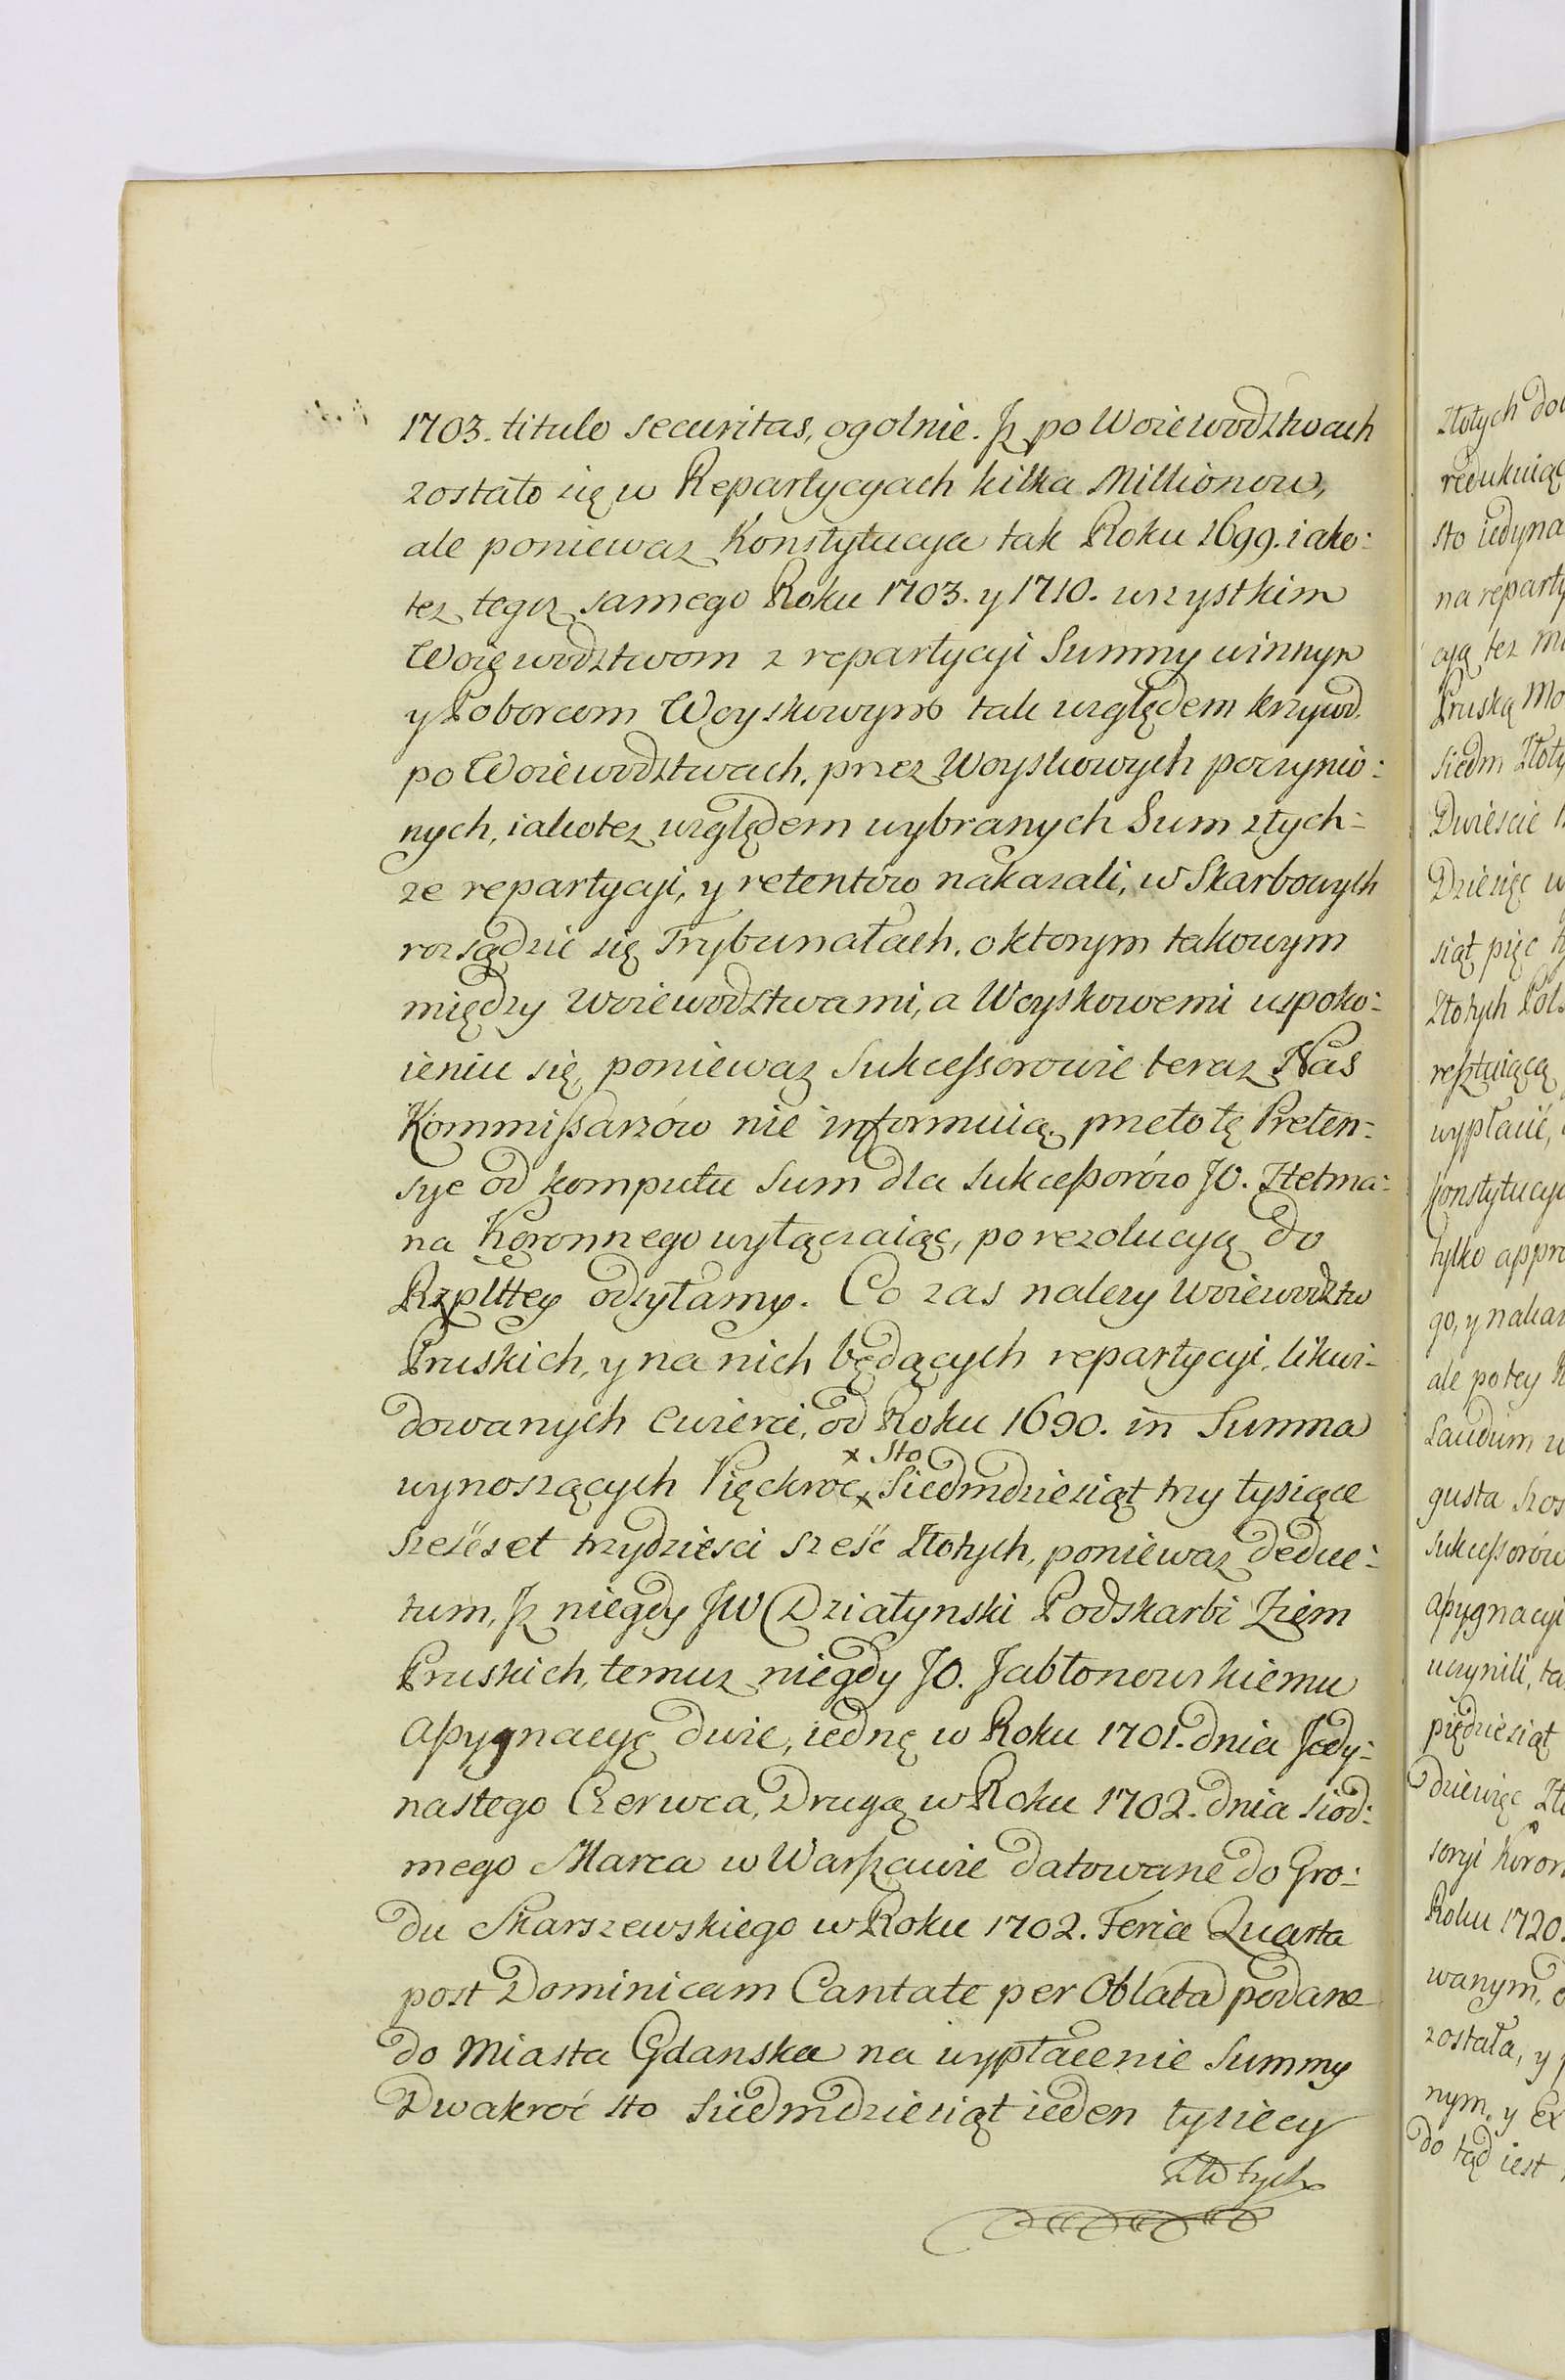 1703. titulo securitas, ogolnie. Jż po Woiewodztwach
zostało się w Repartycyach kilka Millionow,
ale poniewaz Konstytucya tak Roku 1699. iako:
tez tegoz samego Roku 1703. y 1710. wszystkim
Woiewodztwom z repartycyi Summy winnym
y Poborcom Woyskowym tak względem krzywd
po Woiewodztwach, przez Woyskowych poczynio:
nych, iakotez względem wybranych Sum z tych:
ze repartycyi, y retentów nakazali, w Skarbowych
rozsądzić się Trybunałach, o ktorym takowym
między Woiewodztwami, a Woyskowemi uspoko:
ieniu się, poniewaz Sukcessorowie teraz Nas
Kommissarzów nie informuią, przeto tę Preten:
sye od komputu Sum dla Sukcessorów JO. Hetma:
na Koronnego wyłączaiąc, po rezolucyą do
Rzplttey odsyłamy. Co zas nalezy Woiewodztw
Pruskich, y na nich będących repartycyi, likwi:
dowanych Cwierci, od Roku 1690. in Summa
x Sto
wynoszących Pięckroć x Siedmdziesiąt trzy tysiące
szesćset trzydziesci szesć Złotych, poniewaz deduc:
tum, Jż niegdy JW Działynski Podskarbi Ziem
Pruskich, temuz niegdy JO. Jabłonowskiemu
Assygnacyę dwie, iednę w Roku 1701. dnia Jedy:
nastego Czerwca, Drugą w Roku 1702. dnia siod:
mego Marca w Warszawie datowane do Gro:
du Skarszewskiego w Roku 1702. Feria Quarta
post Dominicam Cantate per Oblata podane
do Miasta Gdanska na wypłacenie Summy
Dwakroć sto Siedmdziesiąt ieden tysiecy
Złotych
Złotych
redukuiąc
sto iedyna
na reparty
cyą tez
Pruską Mo
Siedm Złoty
Dwiescie
Dziesięc w
siąt pięc
Złotych Pol.
resztuiącą
wypłacić,
Konstytucy
tylko appro
go, y nakaz
ale po tey
Laudum w
gusta Szos
Sukcessorów
Assygnacyi
uczynili, ta
pięćdziesiąt
dziewięc Zł
soryi Koron
Roku 1720.
wanym,
została, y
nym, y Ex
do tąd iest